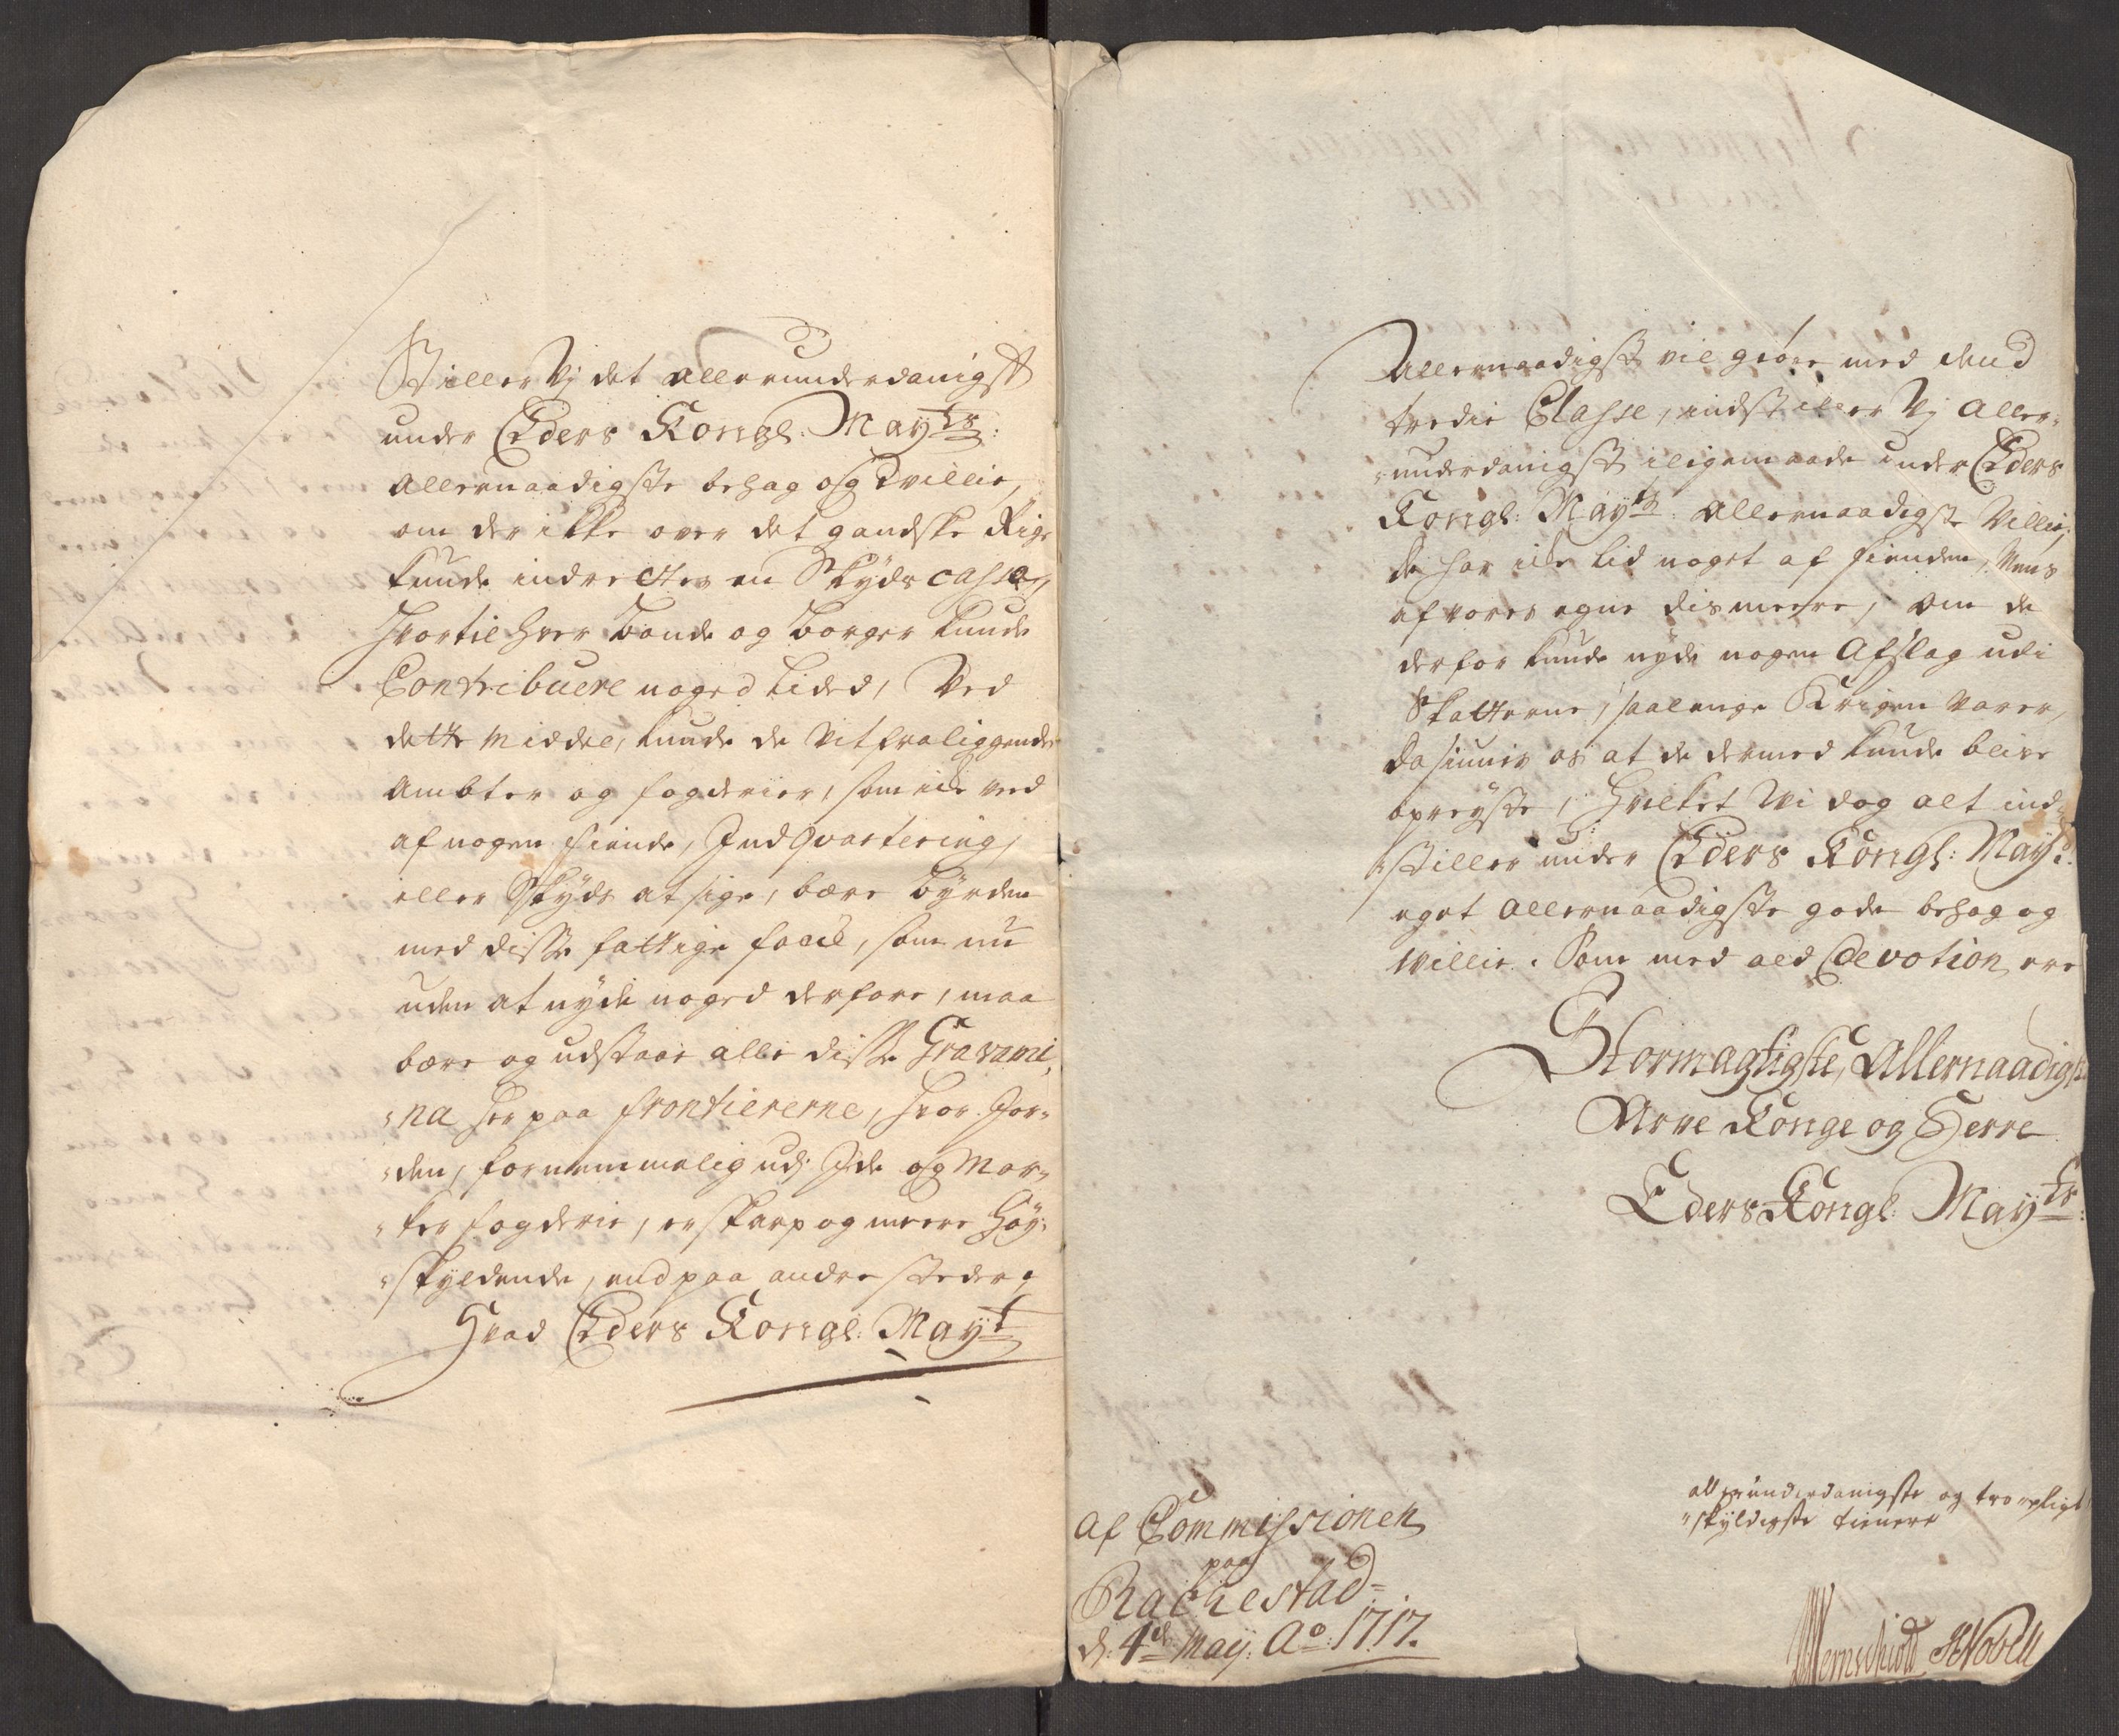 Stiller Vj det allerunderdanigst
under Eders Kongl: Mayts:
allernaadigste behag og Villie,
om der ikke over det gandske Rige
kunde indrettes en Skyds casse,
hvortil hver bonde og borger kunde
Contribuere noged lided, Ved
dette Middel, kunde de Vitfraliggende
Ambter og fogderier, som ide ved
af nogen fiende, Indqvartering,
eller Skyds at sige, bære byrden
med disse fattige folch, som nu
uden at nyde noged derfore, maa
bære og udstaae alle disse Gravami,
"na her paa frontiererne, hvor Jor-
"den, fornemmelig udj Ide og Mar-
"ker fogderie, er skarp og meere høy-
"skyldende, end paa andre steder,
Hvad Eders Kongl: Mayt
Allernaadigst vil giøre med dend
tredie Classe, indstiller Vj aller-
"underdanigst iligemaade under Eders
Kongl: Mayts: allernaadigste Villie,
de har ide lid noget af fienden, Mens
af vores egne dismeere, om de
derfor kunde nyde nogen Afslag udi
Skatterne, saalenge Krigen varer,
da siunes os at de dermed kunde blive
opreyste, hvilket Vi dog alt ind-
"stiller under Eders Kongl: Mayts:
eget allernaadigste gode behag og
Villie. Som med ald Devotion ere
Stormagtigste, Allernaadigste
Arve Konge og Herre
Eders Kongl: Mayts:
allerunderdanigste og troepligt
"skyldigste tienere
af Commissionen
paa
Rachestad
d. 4de May: Ao 1717.